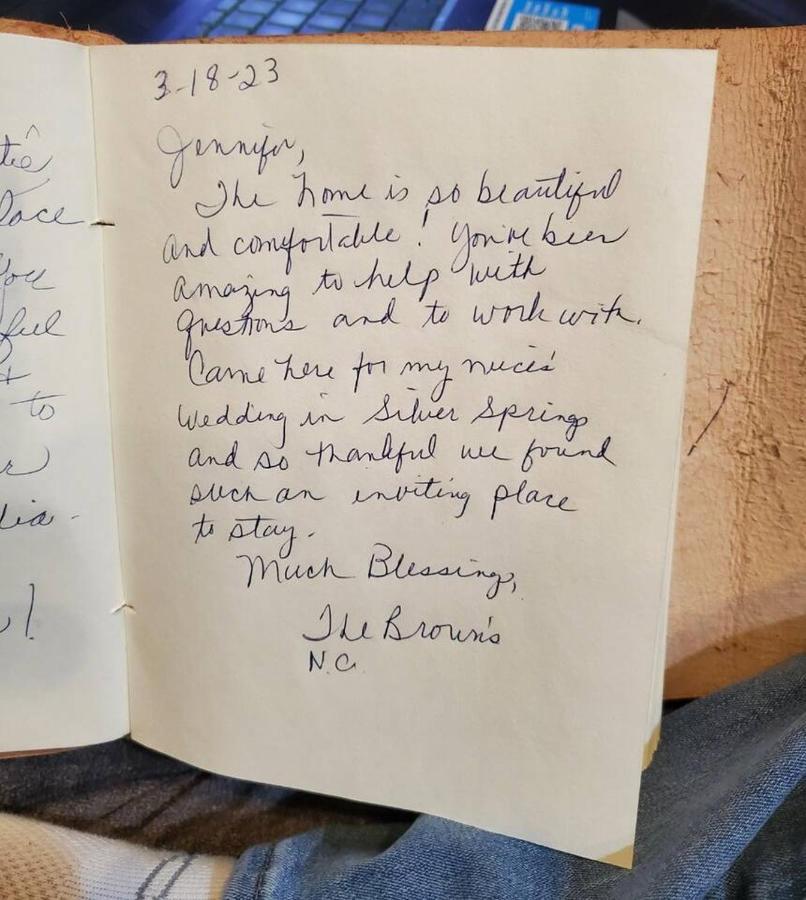 3-18-23
Jennifer,
The home is so beautiful
and comfortable! You've been
amazing to help with
questions and to work with.
Came here for my niece's
wedding in Silver Springs
and so thankful we found
such an inviting place
to stay.
Much Blessings,
The Brown's
N.C.
place
you
ful
to